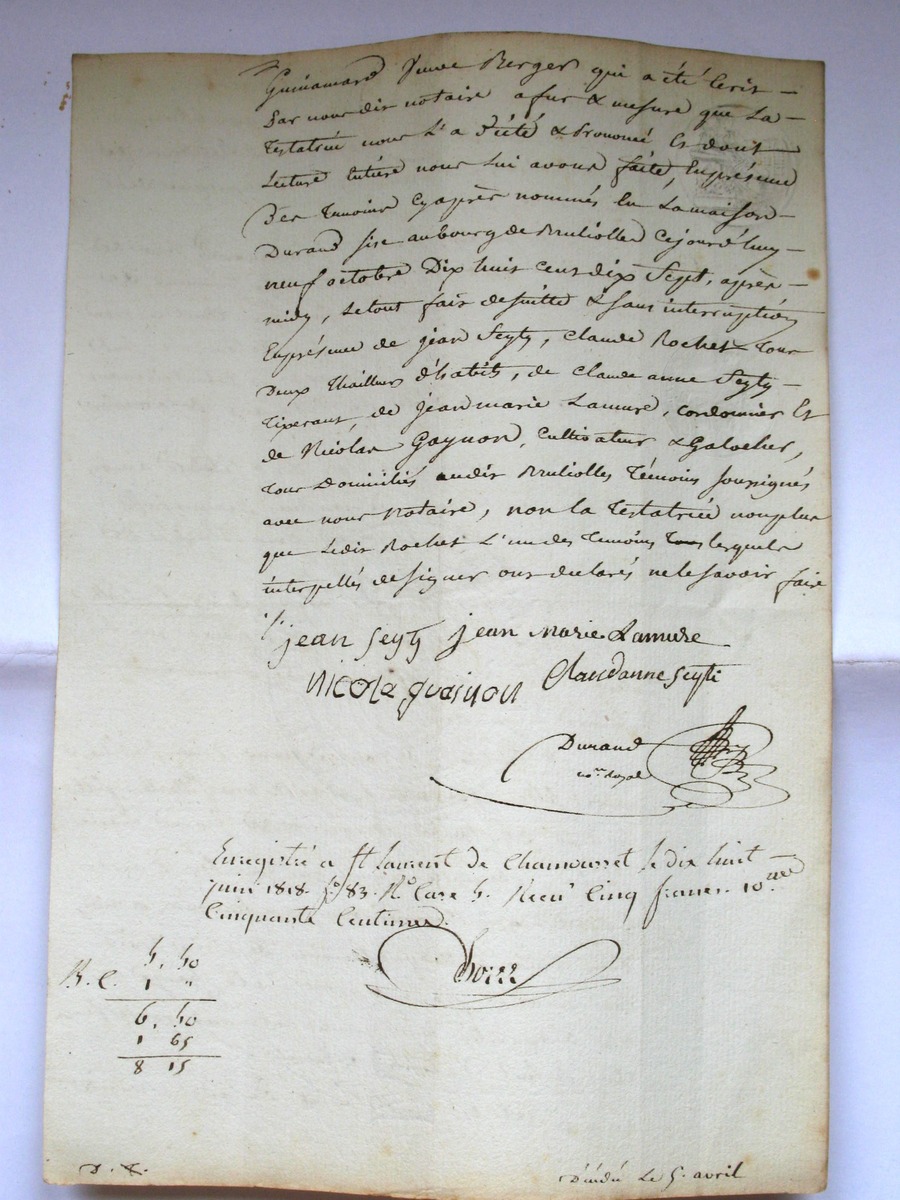 Guinamard Veuve Berger qui a été Ecrit –
Par nous dit notaire a fur & mesure que La –
Testatrice nous L'a dicté & Prononcé Et dont
Lecture Entière nous Lui avons faite, En présence
Des Témoins Cy après nommés En La maison –
Durand sise au bourg de Brullioles Cejourd'huy –
neuf octobre Dix huit cent dix Sept, après –
midy, Le tout fait de suitte & sans interruption
En présence de jean Seyty, Claude Rochet Tous
Deux Thailleurs d'habits, de Claude anne Seyty –
Tixerant, de Jean marie Lamure, Cordonnier Et
de Nicolas Goynon, Cultivateur & Galocher,
Tous Domiciliés audit Brullioles Témoins soussignés
avec nous Notaire, non la Testatrice non plus
que Ledit Rochet L'un des Temoins lesquels
interpellés de signer ont déclarés ne le savoir faire
jean Seyty jean Marie Lamure
Nicola guainon Claudanne Seyti
Durand
nore. Royal
Enregistré a St Laurent de Chamousset le dix huit
juin 1818. fo. 83. Ro. Case 5. Reçu Cinq francs. 10me
Cinquante Centimes.
5. 50
R. C. 1 "
6. 50
1 65
8 15
D. &.
Le 5. avril